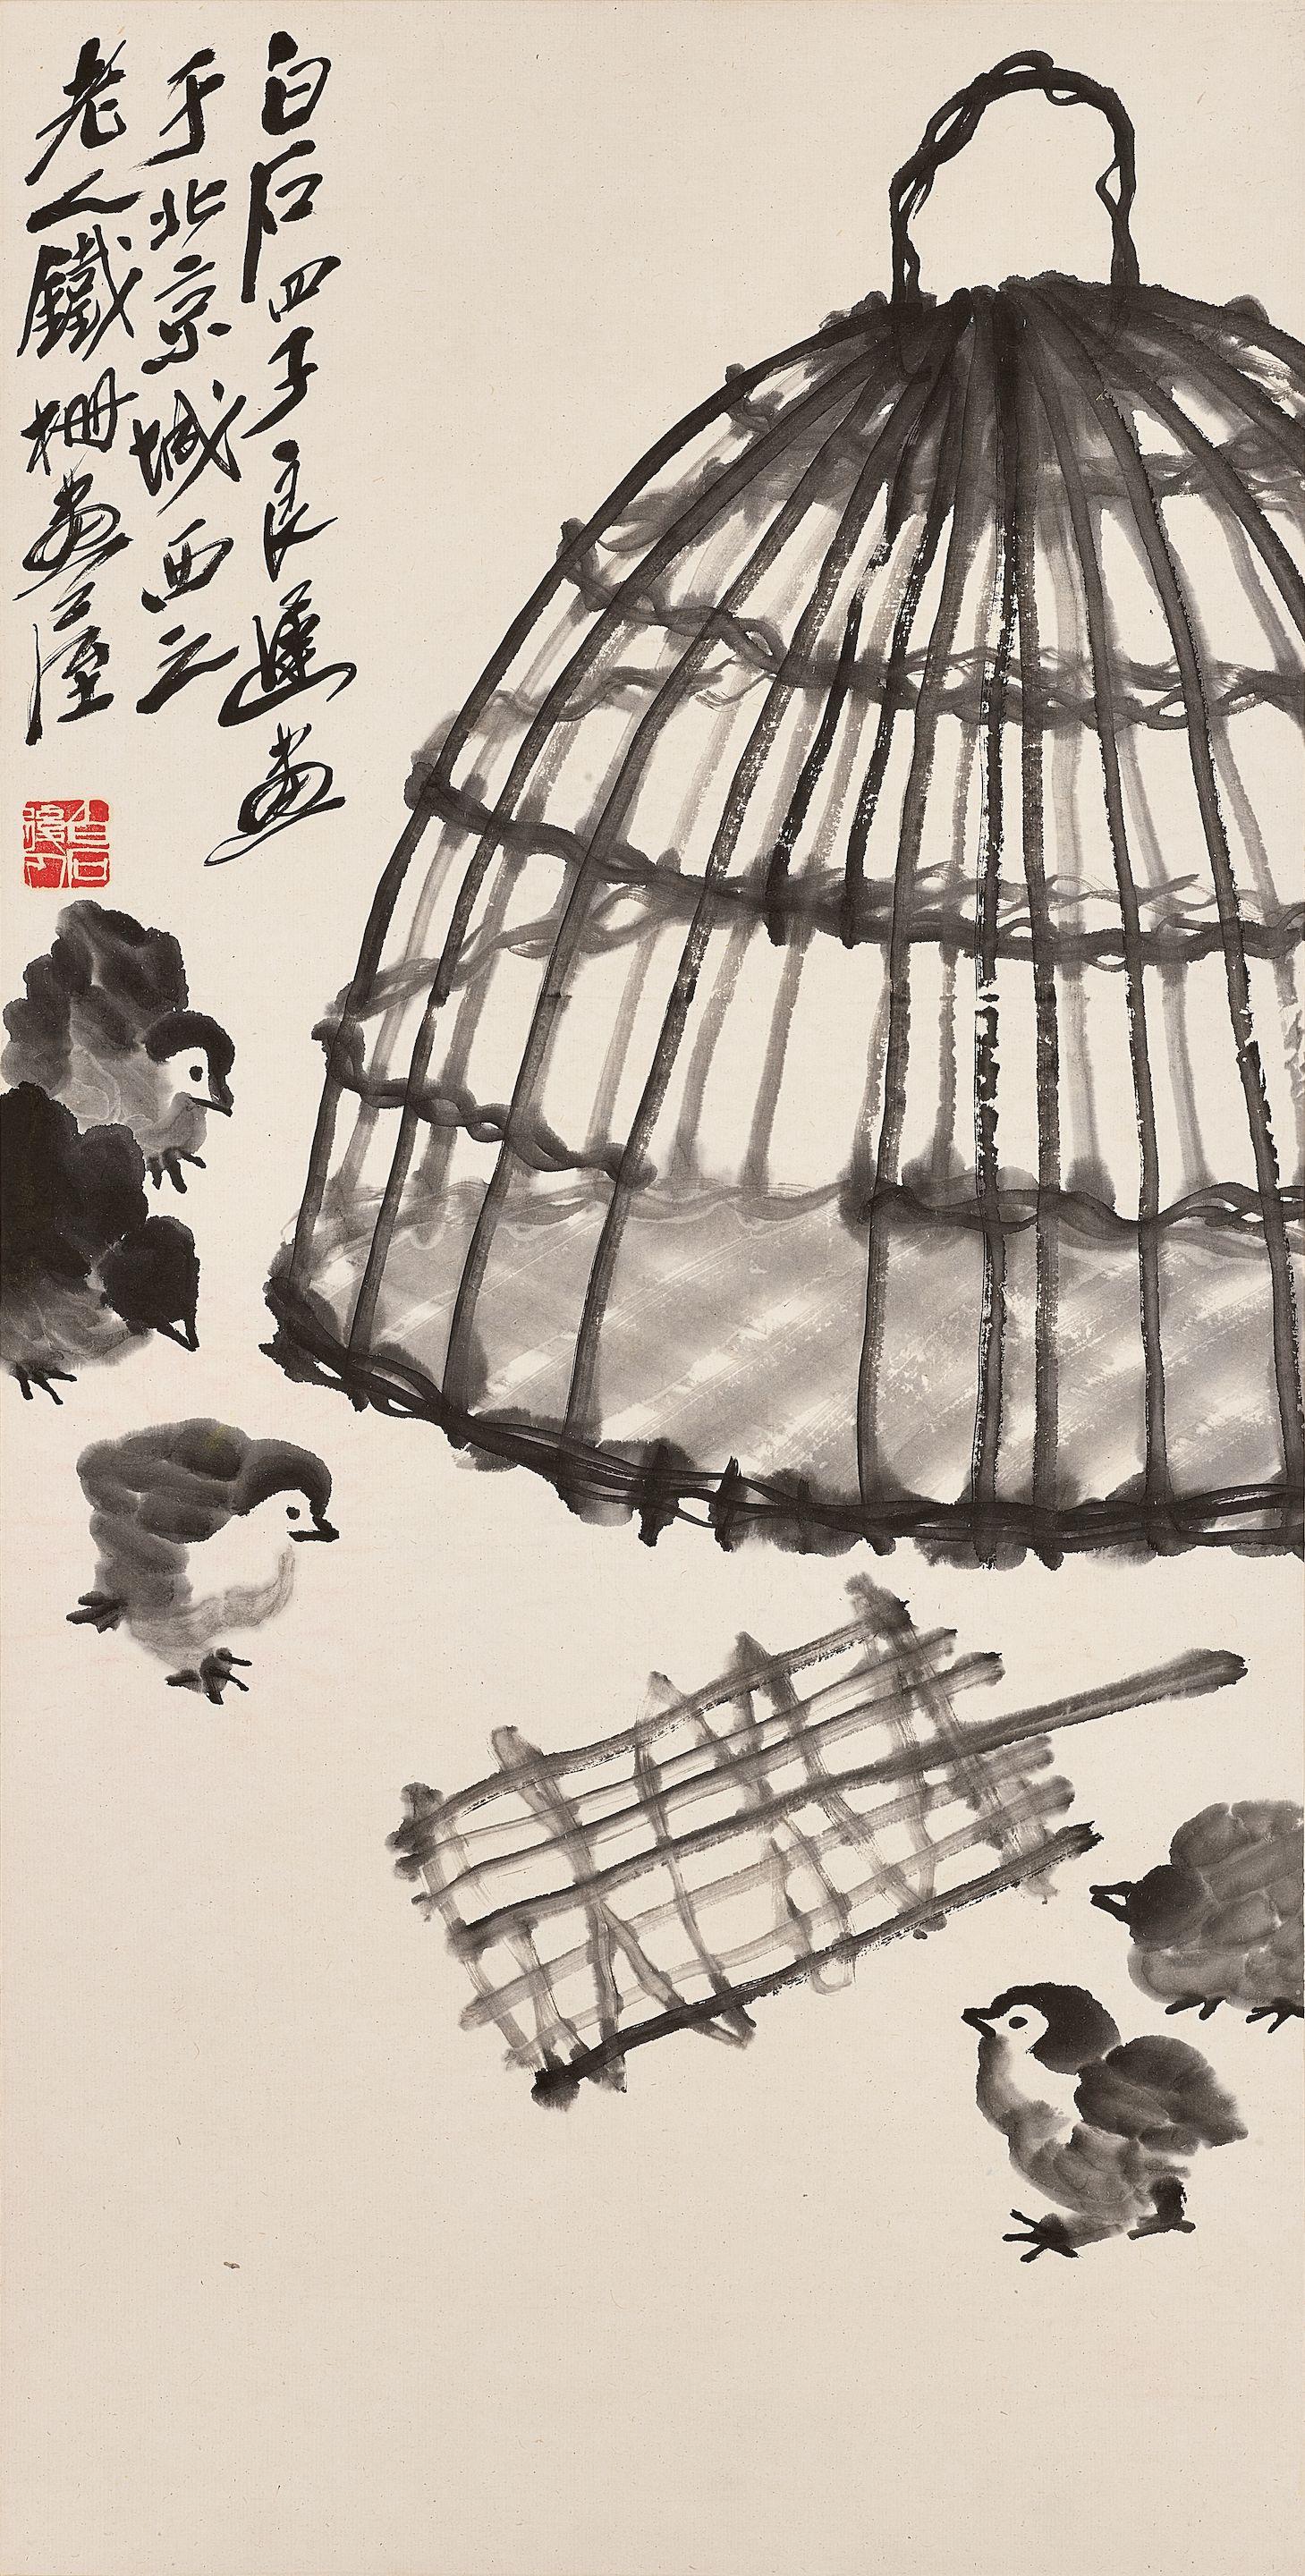 白石四子良遲畫
于北京城西之
老人鐵柵畫屋